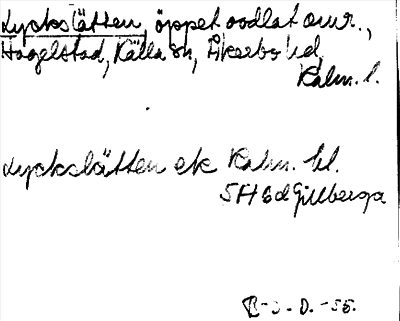 Lyckslätten, öppet oodlat omr.,
Hagelstad, Källa sn, Åkerbo hd,
Kalm. l.
Lyckslätten ek Kalm. bl.
5H 6d Gillberga
B-s-D.-55.